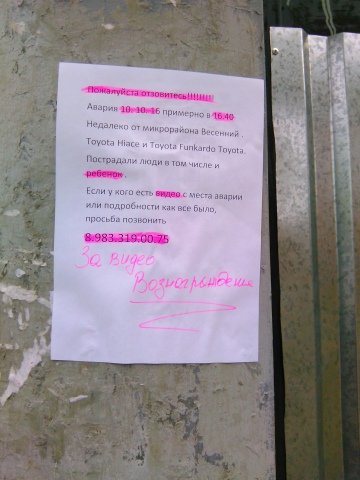 Пожалуйста отзовитесь!!!!!!!
Авария 10. 10. 16 примерно в 16.40
Недалеко от микрорайона Весенний .
Toyota Hiace и Toyota Funkardo Toyota.
Пострадали люди в том числе и
ребенок .
Если у кого есть видео с места аварии
или подробности как все было,
просьба позвонить
8.983.319.00.75
За видео
Вознаграждение